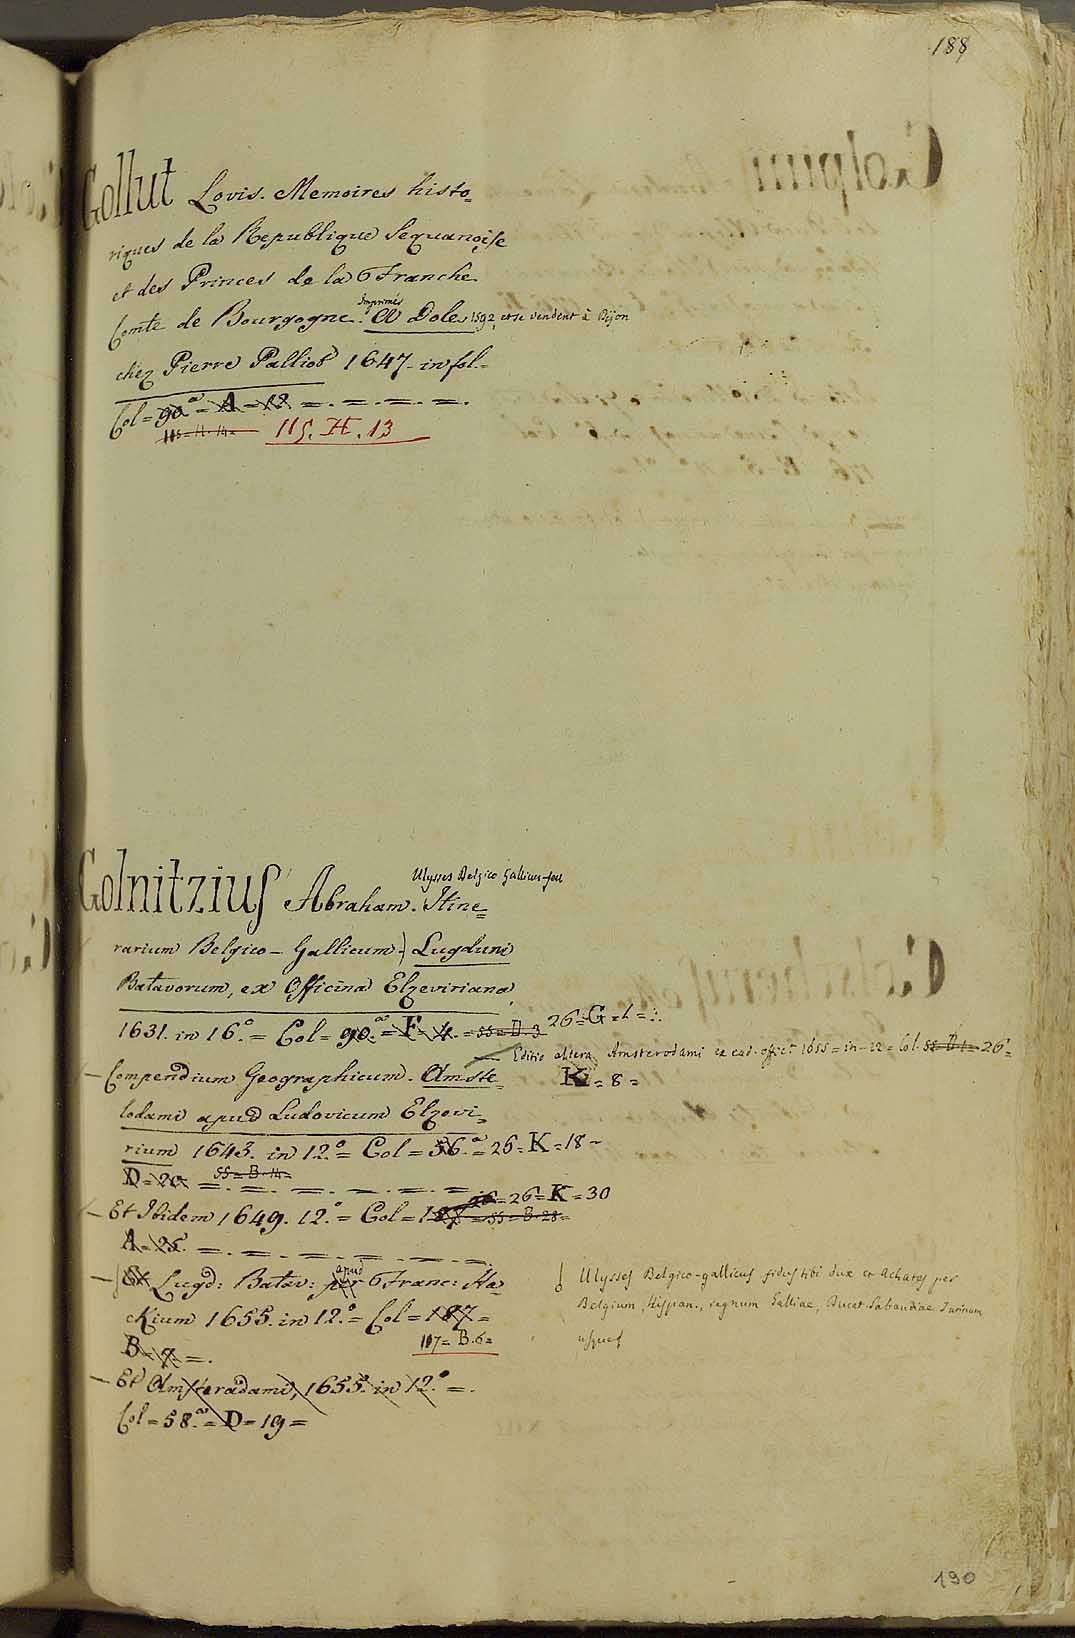 188
Gollut Lovis. Memoires histo=
riques de la Republique Sequanoise
et des Princes de la Franche
Comte de Bourgogne. Imprimés A Dole 1592, et se vendent à Dijon
chez Pierre Palliot 1647. in fol=
Col = 90.ª = A = 12 =.=.=.=.
115 = H. 14= 115. H. 13
Golnitzius Abraham. Ulysses Belgico Gallicus seu Itine=
rarium Belgico-Gallicum. Lugduni
Batavorum, ex Officina Elzeviriana
1631. in 16.° = Col = 90.ª = F = 4. = 55 = D. 3 26 = G = 1 =
— Editio altera Amsterodami ex ead. offic. 1655 = in-12 = Col. 26 =
K = 8 =
— Compendium Geographicum. Amste=
lodami apud Ludovicum Elzevi=
rium 1643. in 12.° = Col = 56.ª = 26 = K = 18 -
D = 20 55 = B. 14 =
— Et Ibidem 1649. 12.° = Col = 187 = 55 = B. 28 = 26 = K = 30
A = 25. =.=.=.=.
— Et Lugd: Batav: per apud Franc: Ha
ckium 1655. in 12.° = Col = 187 =
B = =. 107 = B. 6 =
Ulysses Belgico-gallicus fidus tibi dux et Achates per
Belgium, Hispan., regnum Galliae, Ducat. Sabaudiae Turinum
usque
— Et Amsteradami, 1655. in 12.° =.
Col = 58.ª = D = 19 =
190